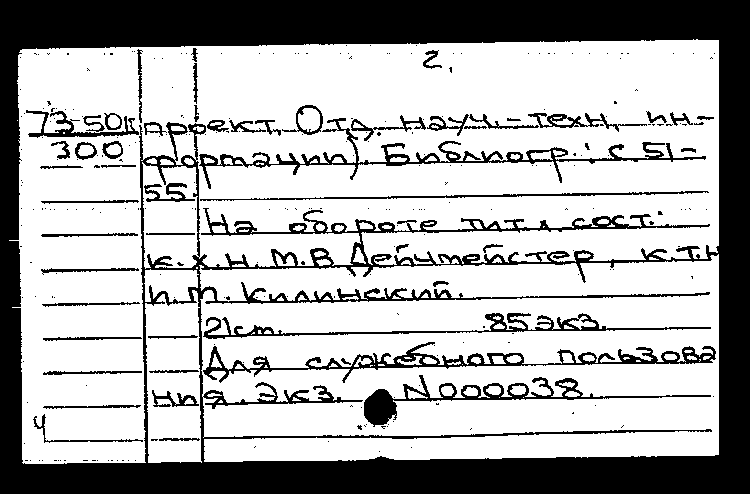 2.
73-50к проект. Отд. науч.-техн. ин-
300 формации). Библиогр.: с 51-
55.
На обороте тит. л. сост.:
к.х.н. М.В Дейчмейстер, к.т.н
И.М. Килинский.
21см. 85 экз.
Для служебного пользова
ния. Экз. N000038.
4